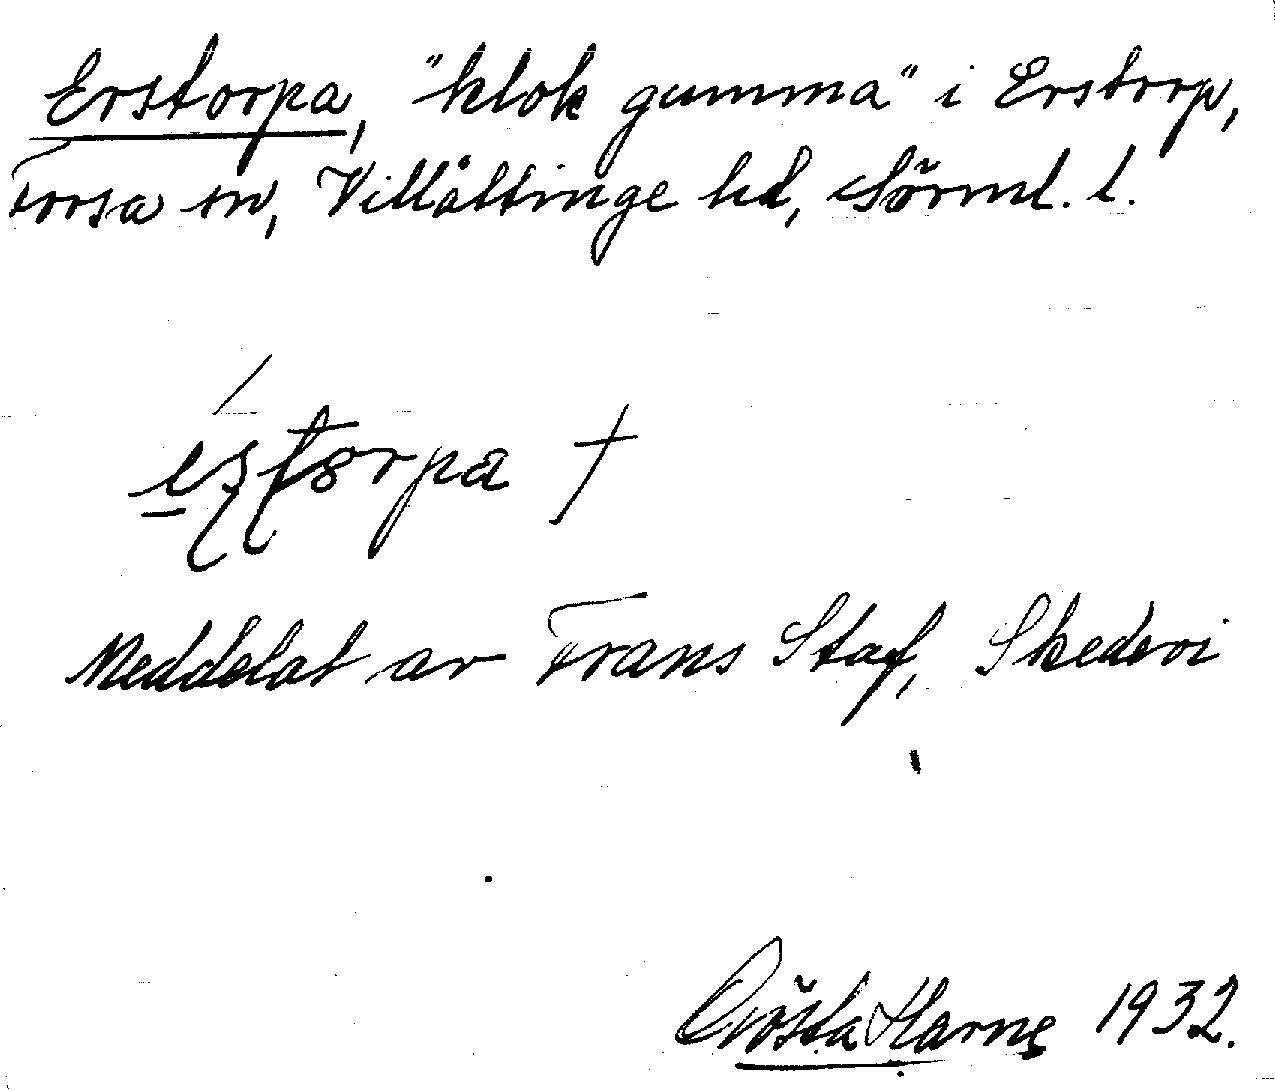 Erstorpa, "klok gumma" i Erstorp,
Forsa sn, Villåttinge hd, Sörml. l.
Meddelat av Frans Staf, Skedevi
Gösta Harne 1932.